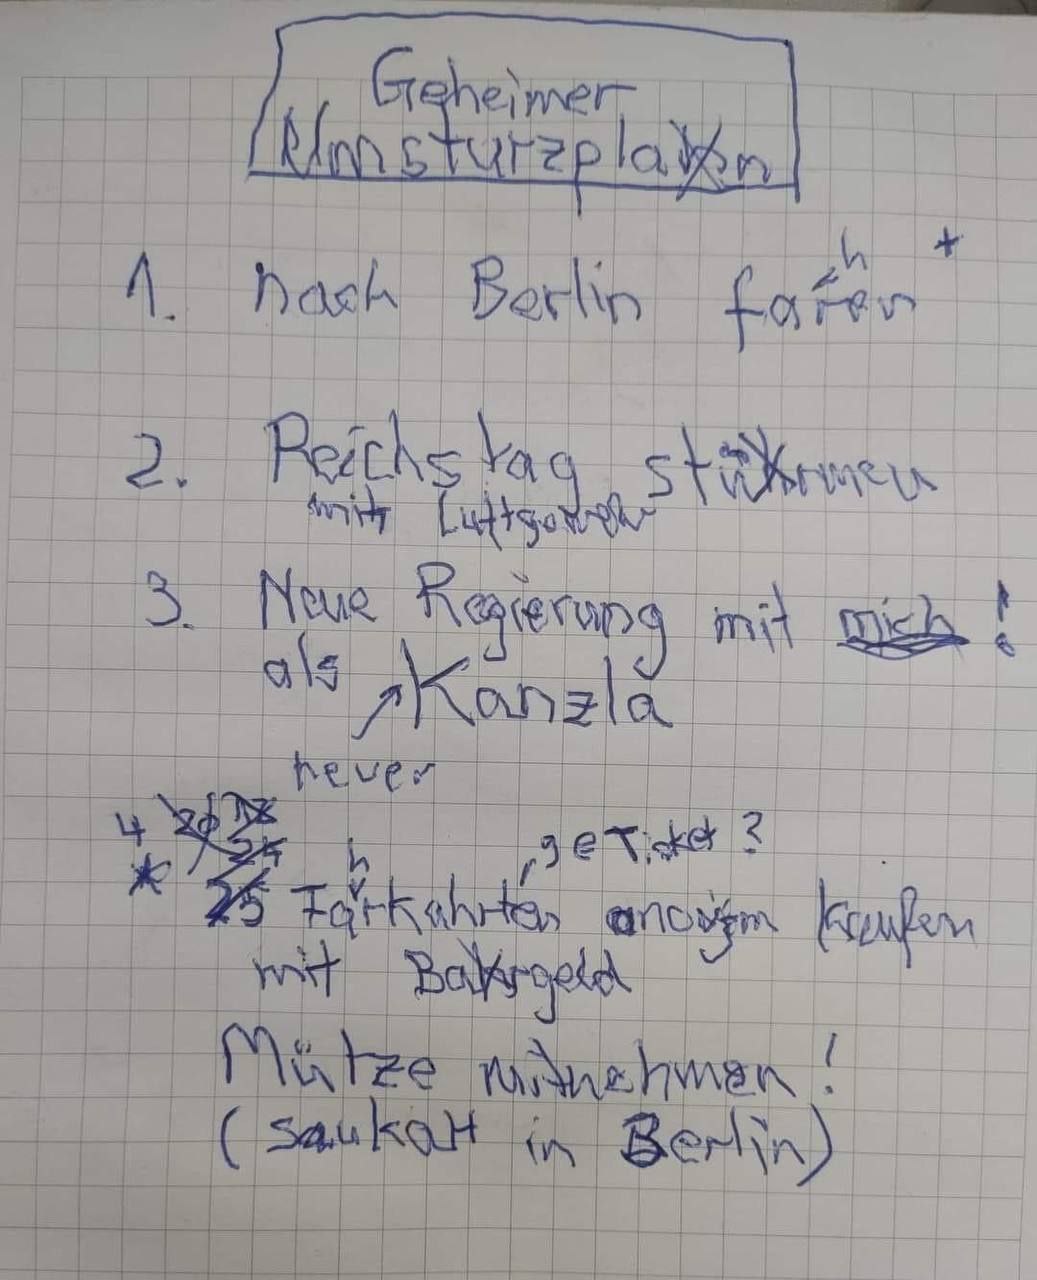 Geheimer
Umsturzplan
1. nach Berlin fahren *
2. Reichstag stürmen
mit Luftgewehr
3. Neue Regierung mit mich!
als Kanzla
neuer
4
* Fahrkahrten anonym kaufen
, 9€ Ticket?
mit Bargeld
Mütze mitnehmen!
(saukalt in Berlin)